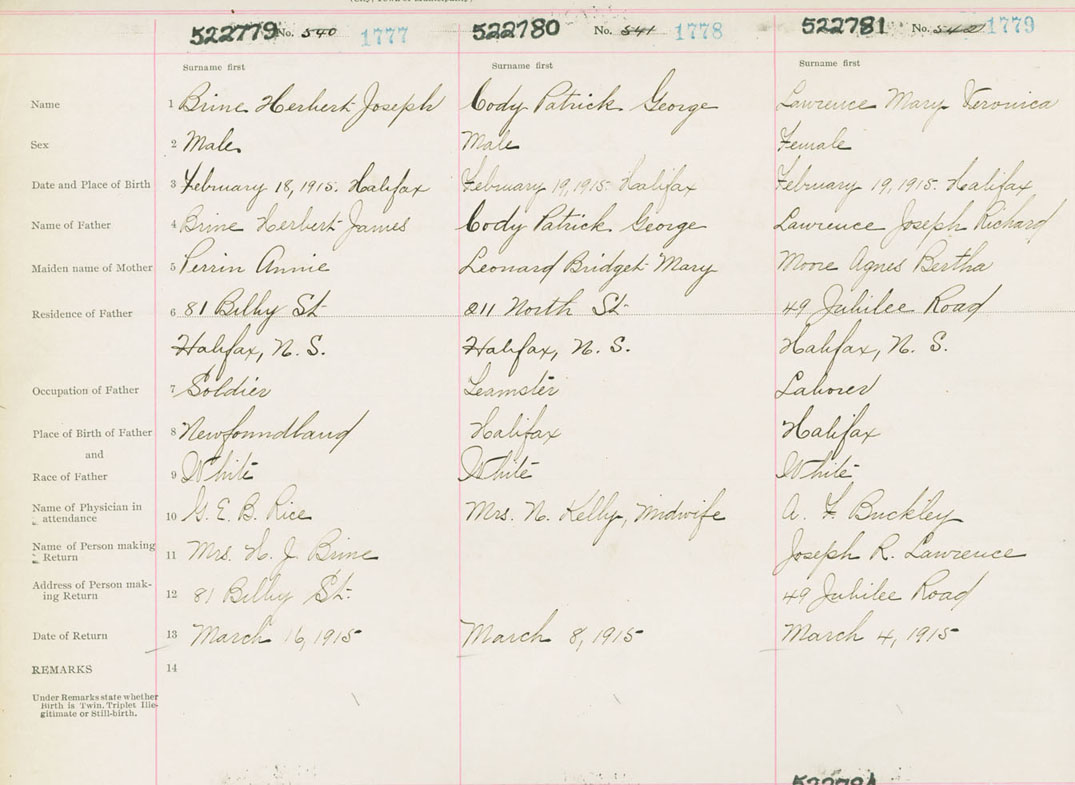 522779 No. 540 1777 522780 No. 541 1778 522781 No. 1779
Surname first Surname first Surname first
Name 1 Brine Herbert Joseph Cody Patrick George Lawrence Mary Veronica
Sex 2 Male Male Female
Date and Place of Birth 3 February 18, 1915. Halifax February 19, 1915. Halifax February 19, 1915. Halifax
Name of Father 4 Brine Herbert James Cody Patrick George Lawrence Joseph Richard
Maiden name of Mother 5 Perrin Annie Leonard Bridget Mary Moore Agnes Bertha
Residence of Father 6 81 Bilby St 211 North St 49 Jubilee Road
Halifax, N. S. Halifax, N. S. Halifax, N. S.
Occupation of Father 7 Soldier Teamster Laborer
Place of Birth of Father 8 Newfoundland Halifax Halifax
and
Race of Father 9 White White White
Name of Physician in
attendance 10 G. E. B. Rice Mrs. N. Kelly, Midwife A. F. Buckley
Name of Person making
Return 11 Mrs. H. J. Brine Joseph R. Lawrence
Address of Person mak-
ing Return 12 81 Bilby St. 49 Jubilee Road
Date of Return 13 March 16, 1915 March 8, 1915 March 4, 1915
REMARKS 14
Under Remarks state whether
Birth is Twin, Triplet Ille-
gitimate or Still-birth.